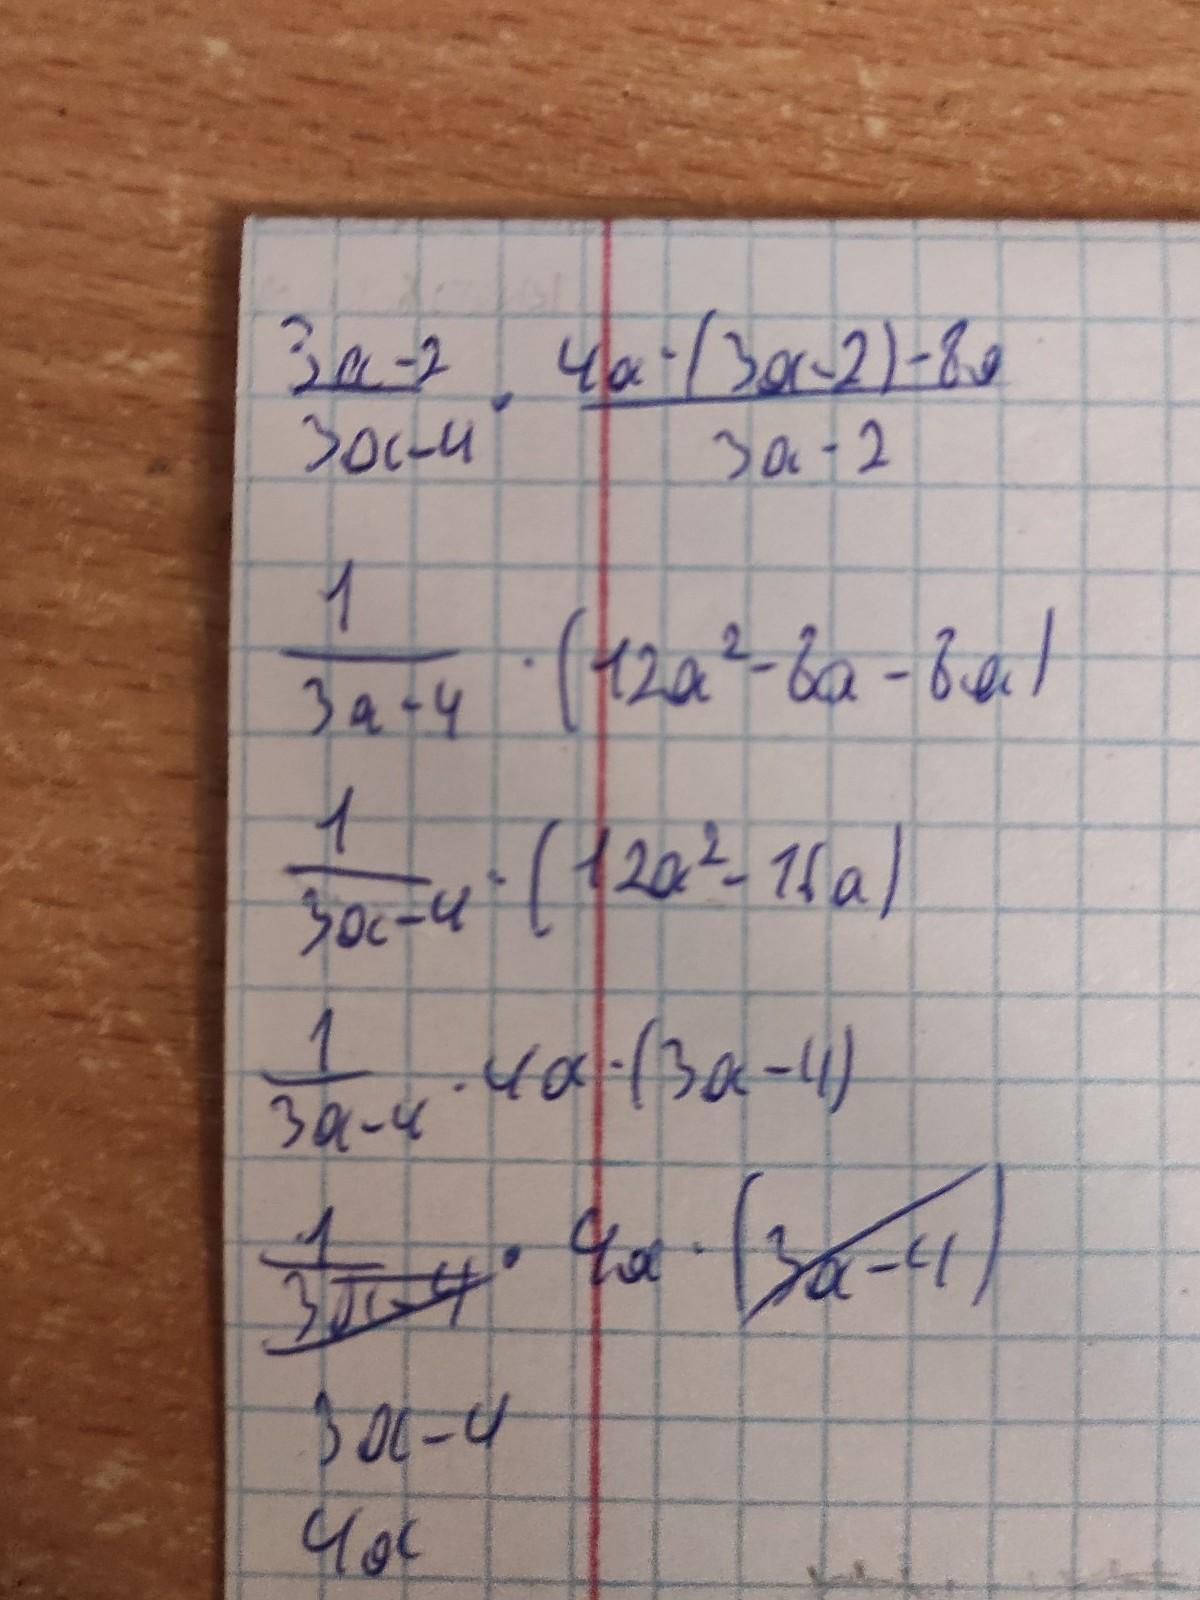 3a-2 / 3a-4 · 4a·(3a-2)-8a / 3a-2
1 / 3a-4 · (12a²-8a-8a)
1 / 3a-4 · (12a²-16a)
1 / 3a-4 · 4a·(3a-4)
1 / 3a-4 · 4a·(3a-4)
3a-4
4a